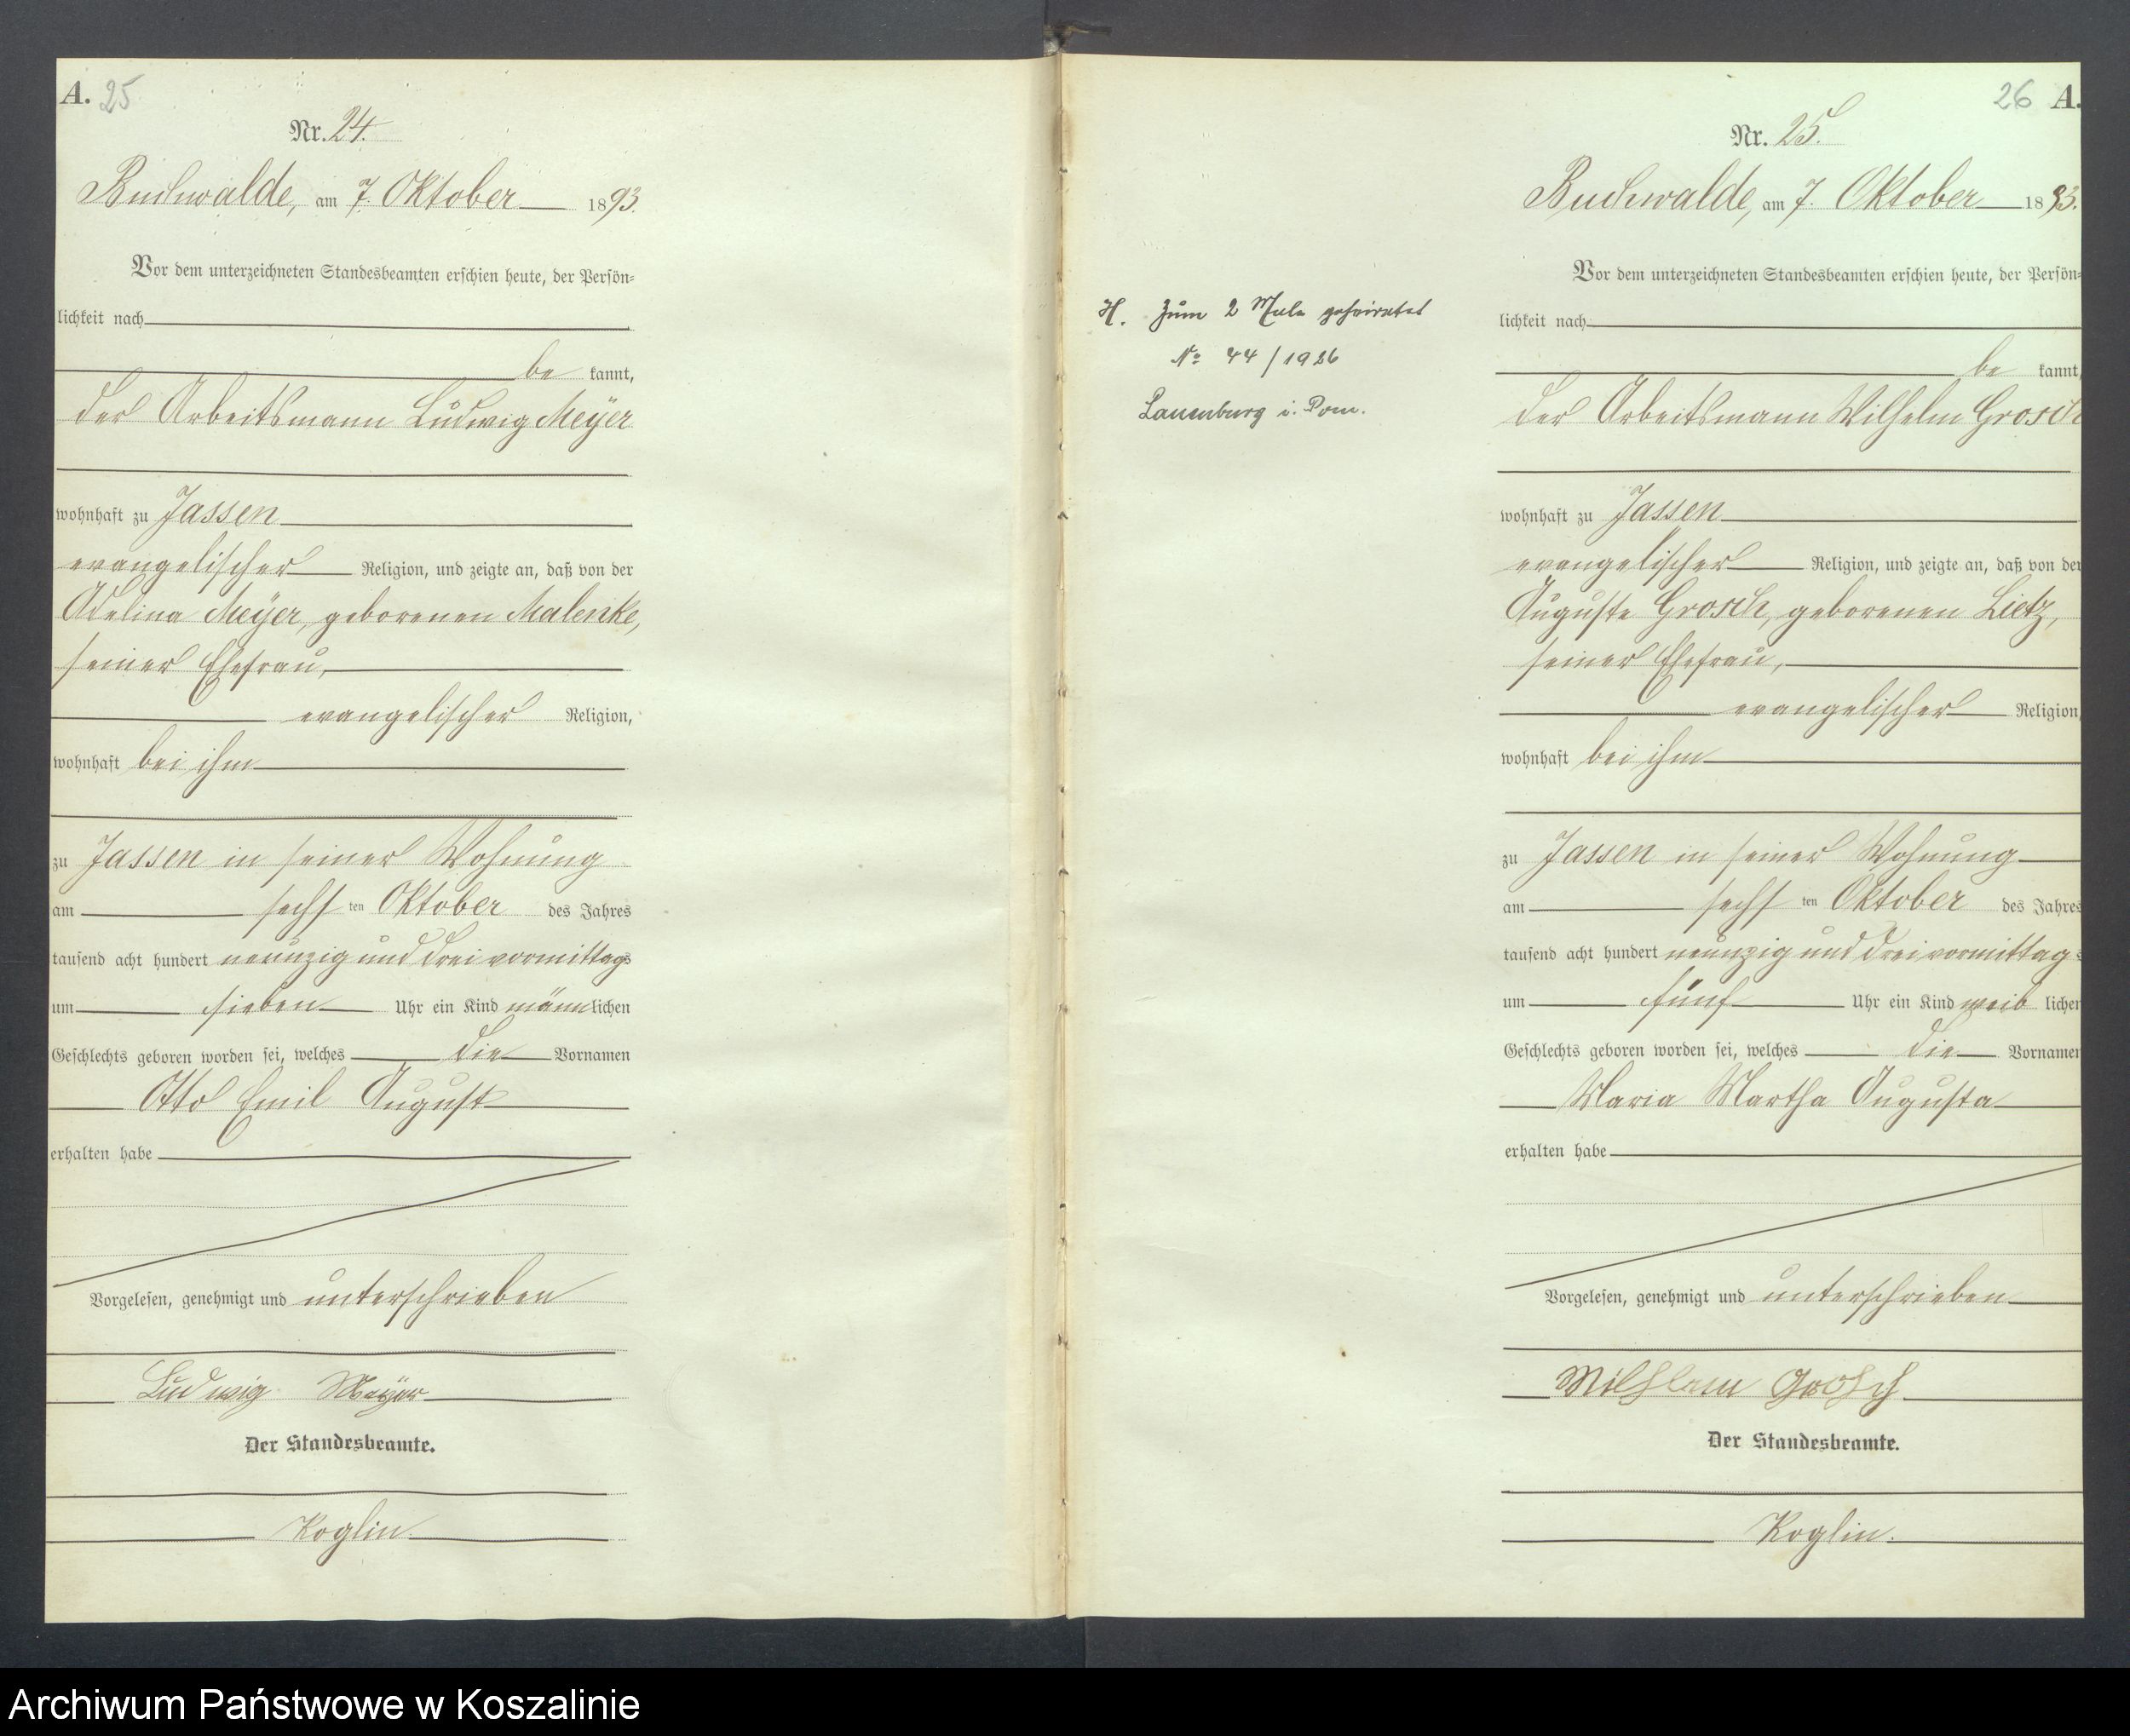 A. 25
Nr. 24.
Buchwalde, am 7. Oktober 1893.
Vor dem unterzeichneten Standesbeamten erschien heute, der Persön-
lichkeit nach
be kannt,
der Arbeitsmann Ludwig Meÿer
wohnhaft zu Jassen
evangelischer Religion, und zeigte an, daß von der
Adelina Meÿer, geborenen Malenke,
seiner Ehefrau,
evangelischer Religion,
wohnhaft bei ihm
zu Jassen in seiner Wohnung
am sechsten Oktober des Jahres
tausend acht hundert neunzig und drei vormittags
um sieben Uhr ein Kind männlichen
Geschlechts geboren worden sei, welches die Vornamen
Otto Emil August
erhalten habe
Vorgelesen, genehmigt und unterschrieben
Ludwig Meÿer
Der Standesbeamte.
Koglin.
H. Zum 2 Male geheiratet
No 44/1926
Lauenburg i. Pom.
26 A.
Nr. 25.
Buchwalde, am 7. Oktober 1893.
Vor dem unterzeichneten Standesbeamten erschien heute, der Persön-
lichkeit nach
be kannt,
der Arbeitsmann Wilhelm Grosch
wohnhaft zu Jassen
evangelischer Religion, und zeigte an, daß von der
Auguste Grosch, geborenen Lietz,
seiner Ehefrau,
evangelischer Religion,
wohnhaft bei ihm
zu Jassen in seiner Wohnung
am sechsten Oktober des Jahres
tausend acht hundert neunzig und drei vormittags
um fünf Uhr ein Kind weiblichen
Geschlechts geboren worden sei, welches die Vornamen
Maria Martha Augusta
erhalten habe
Vorgelesen, genehmigt und unterschrieben
Wilhlem Grosch
Der Standesbeamte.
Koglin.
Archiwum Państwowe w Koszalinie